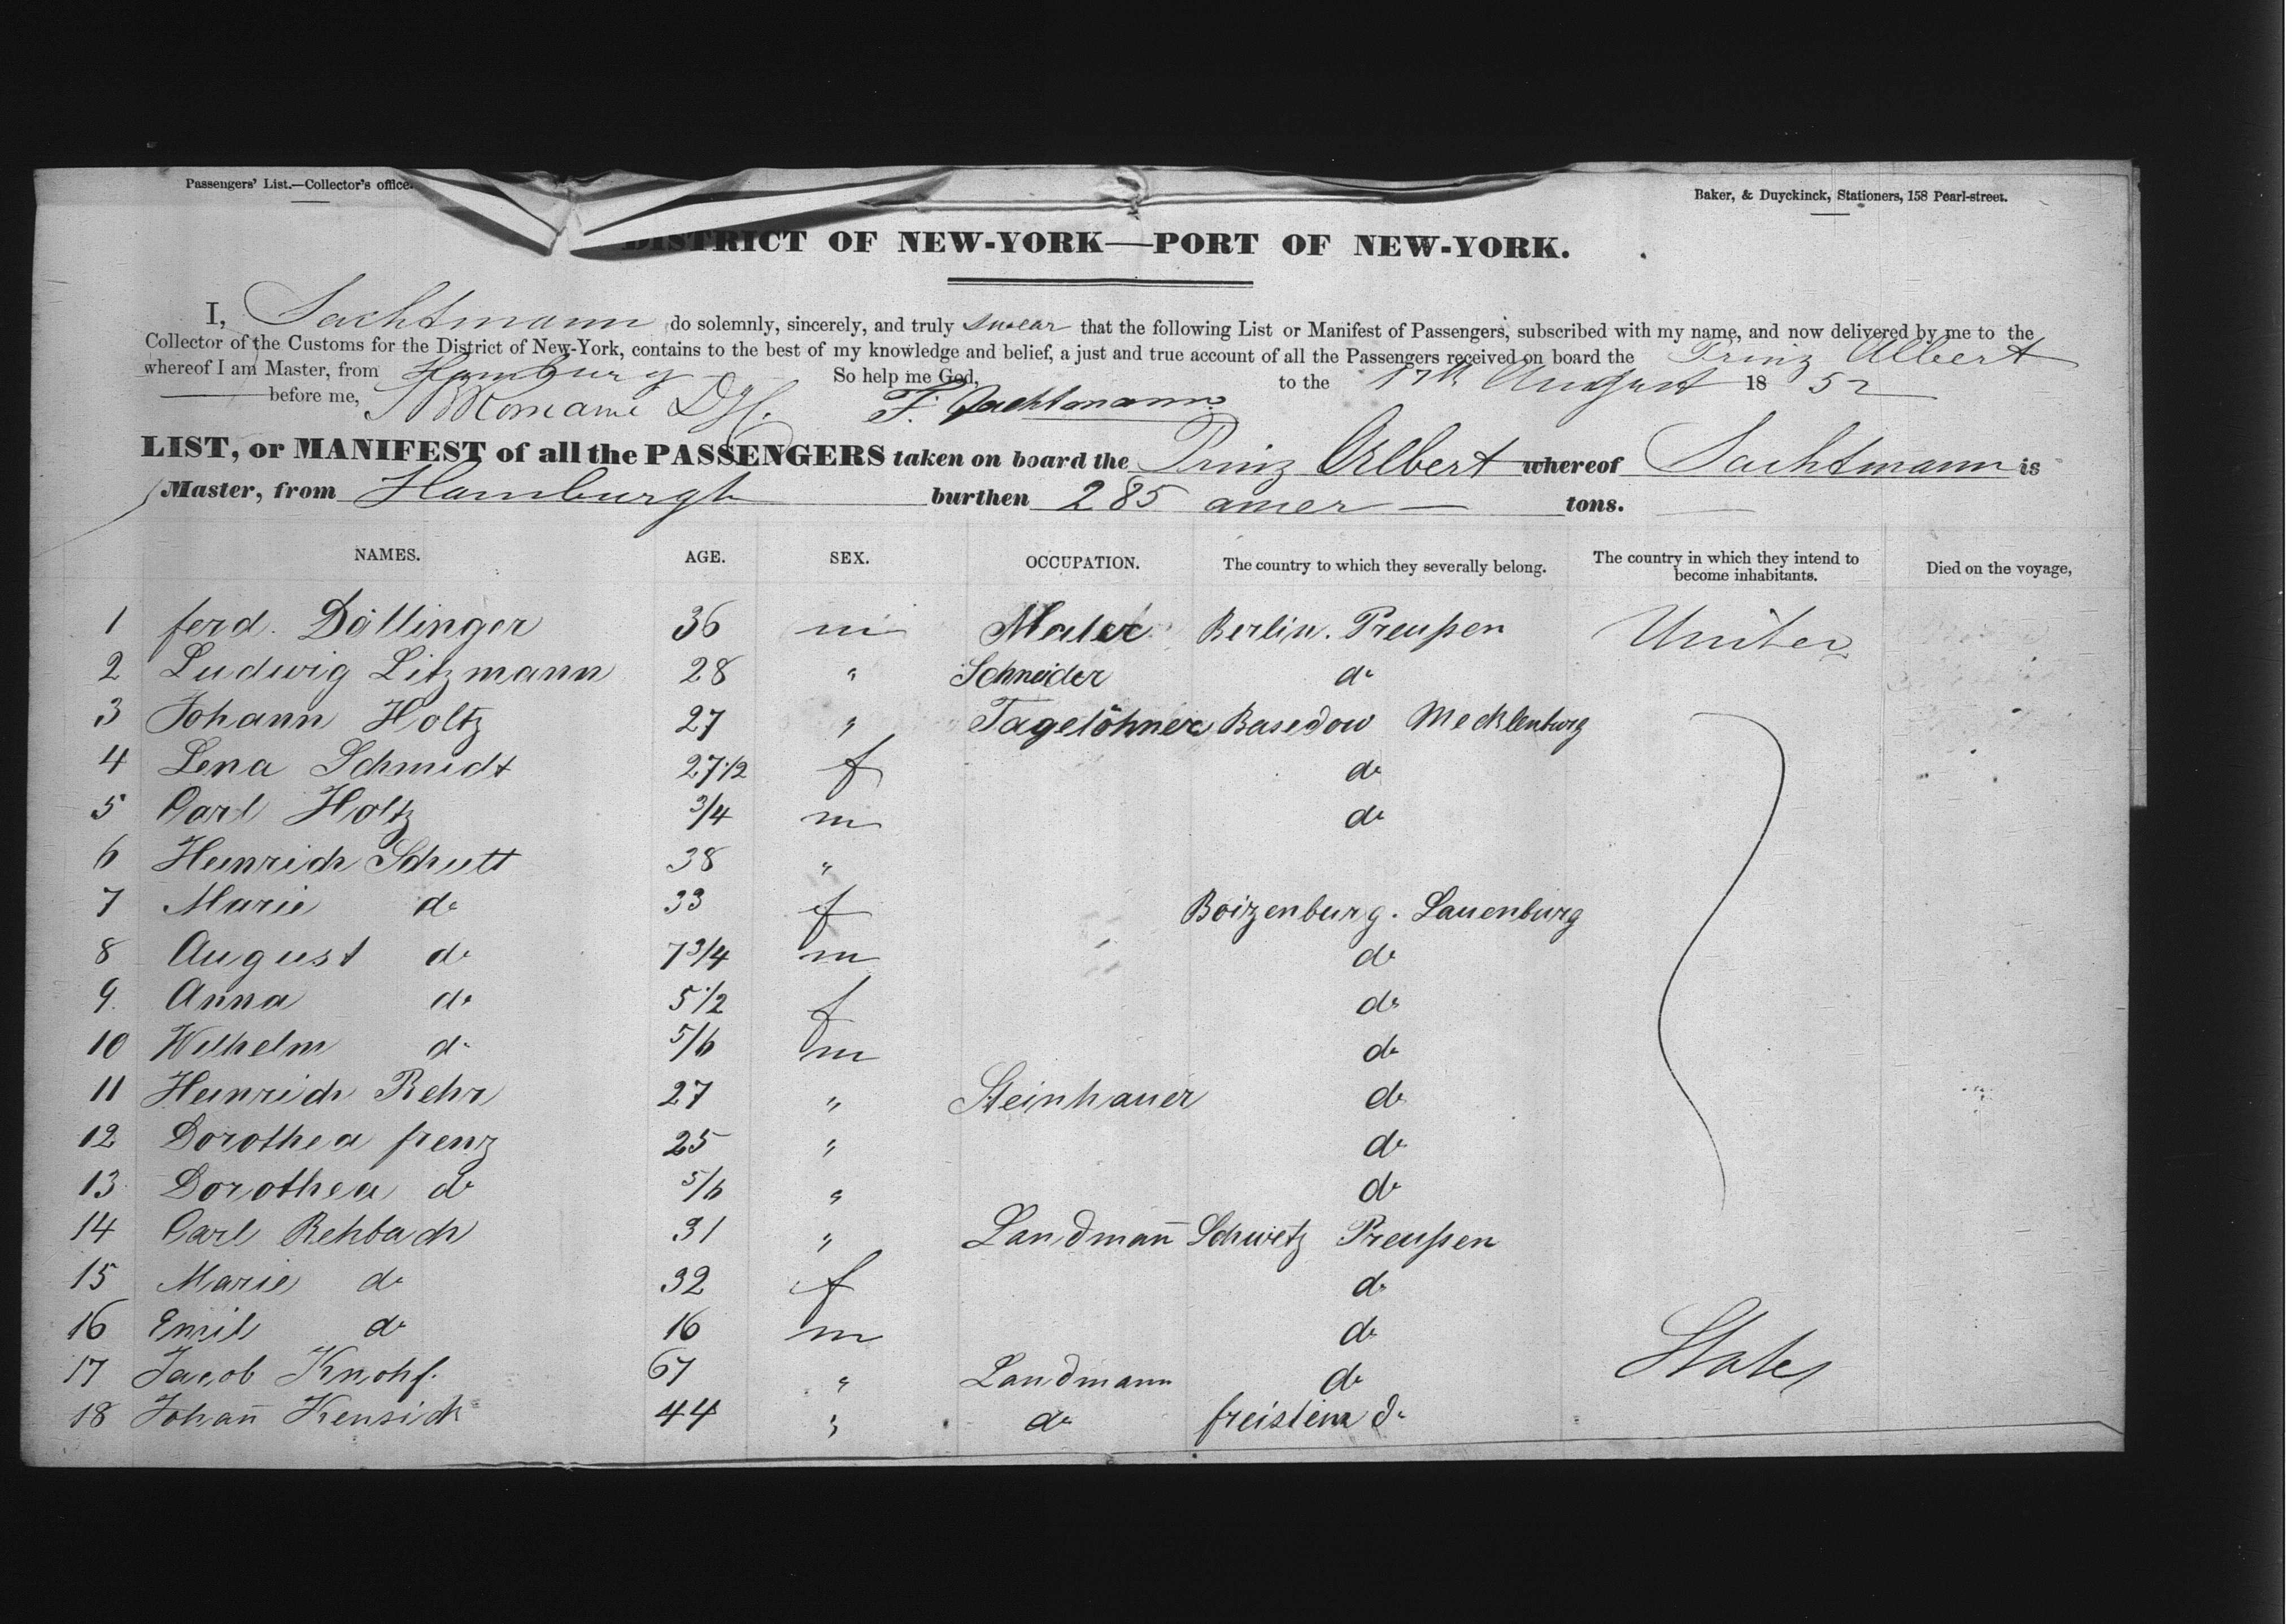 Passengers' List.—Collector's office.
Baker, & Duyckinck, Stationers, 158 Pearl-street.
DISTRICT OF NEW-YORK—PORT OF NEW-YORK.
I, Sachtmann do solemnly, sincerely, and truly swear that the following List or Manifest of Passengers, subscribed with my name, and now delivered by me to the
Collector of the Customs for the District of New-York, contains to the best of my knowledge and belief, a just and true account of all the Passengers received on board the Prinz Albert
whereof I am Master, from Hamburg So help me God, to the 17th August 1852
before me, F. Sachtmann
LIST, or MANIFEST of all the PASSENGERS taken on board the Prinz Albert whereof Sachtmann is
Master, from Hamburgh burthen 285 amer — tons.
NAMES. AGE. SEX. OCCUPATION. The country to which they severally belong. The country in which they intend to become inhabitants. Died on the voyage,
1 ferd. Döllinger 36 m Maler Berlin. Preußen United
2 Ludwig Litzmann 28 " Schneider do
3 Johann Holtz 27 " Tagelöhner Basedow Mecklenburg
4 Lena Schmidt 27 1/2 f do
5 Carl Holtz 3/4 m do
6 Heinrich Schutt 38 "
7 Marie do 33 f Boizenburg. Lauenburg
8 August do 7 3/4 m do
9. Anna do 5 1/2 f do
10 Wilhelm do 5/6 m do
11 Heinrich Rehr 27 " Steinhauer do
12 Dorothea frenz 25 " do
13 Dorothea do 5/6 " do
14 Carl Rehbach 31 " Landmañ Schwetz Preußen
15 Marie do 32 f do
16 Emil do 16 m do
17 Jacob Knohf. 67 " Landmann do States
18 Johañ Kensick 44 " do freistein do